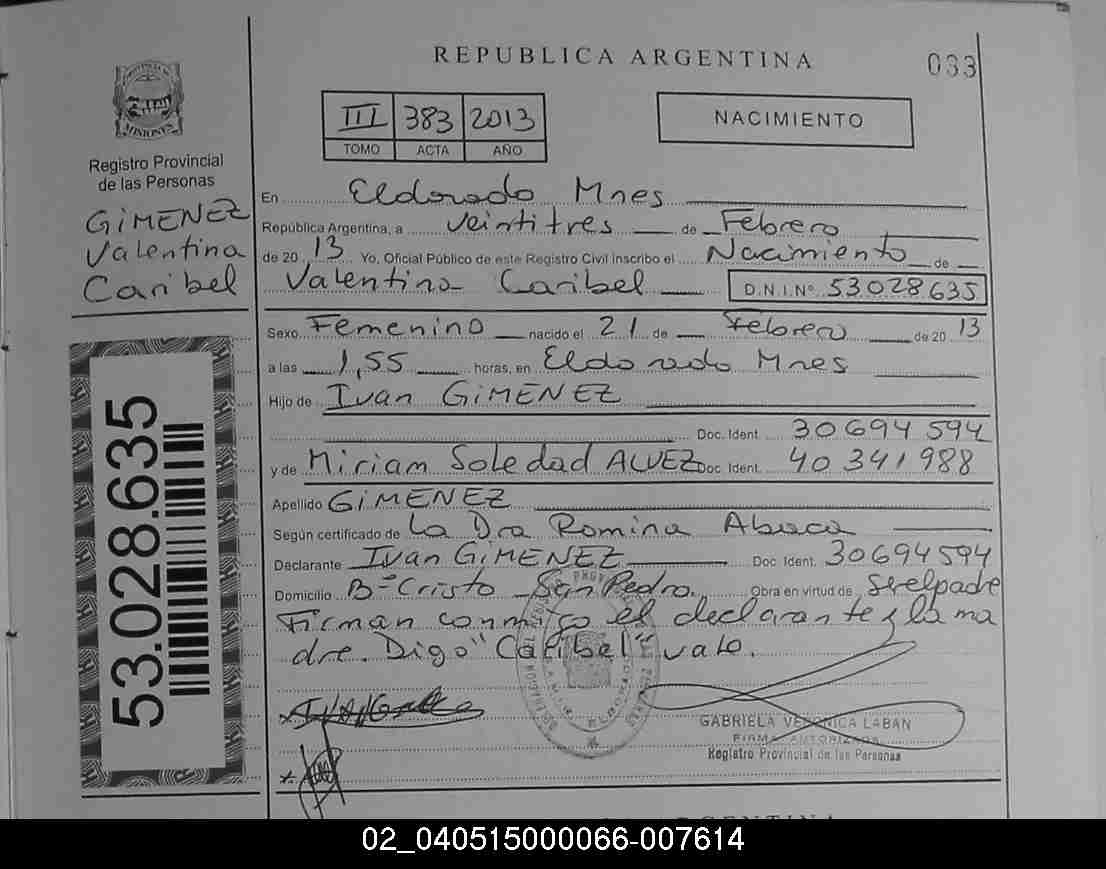 REPUBLICA ARGENTINA
033
PROVINCIA DE
MISIONES
Registro Provincial
de las Personas
GIMENEZ
Valentina
Caribel
III 383 2013
TOMO ACTA AÑO
NACIMIENTO
En Eldorado Mnes
República Argentina, a veintitres de Febrero
de 20 13 Yo, Oficial Público de este Registro Civil inscribo el Nacimiento de
Valentina Caribel D.N.I.Nº 53028635
Sexo Femenino nacido el 21 de Febrero de 20 13
a las 1,55 horas, en Eldorado Mnes
Hijo de Ivan GIMENEZ
Doc. Ident. 30694594
y de Miriam Soledad ALVEZ Doc. Ident. 40341988
Apellido GIMENEZ
Según certificado de La Dra Romina
Declarante Ivan GIMENEZ Doc. Ident. 30694594
Domicilio Bº Cristo San Pedro. Obra en virtud de
Firman conmigo el declarante y la ma
dre. Digo "Caribel" vale.
53.028.635
GABRIELA VERONICA LABAN
FIRMA AUTORIZADA
Registro Provincial de las Personas
ARGENTINA
02_040515000066-007614